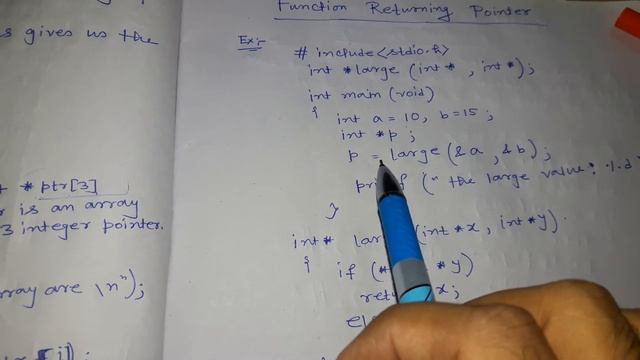 s gives us the
* ptr[3]
is an array
3 integer pointer.
array are \n");
Function Returning Pointer
Ex:-
# include <stdio.h>
int *large (int *, int *);
int main (void)
{ int a = 10, b = 15;
int *p;
p = large (&a, &b);
("the large value: %d
}
int* (int *x, int *y)
{ if ( *y)
x;